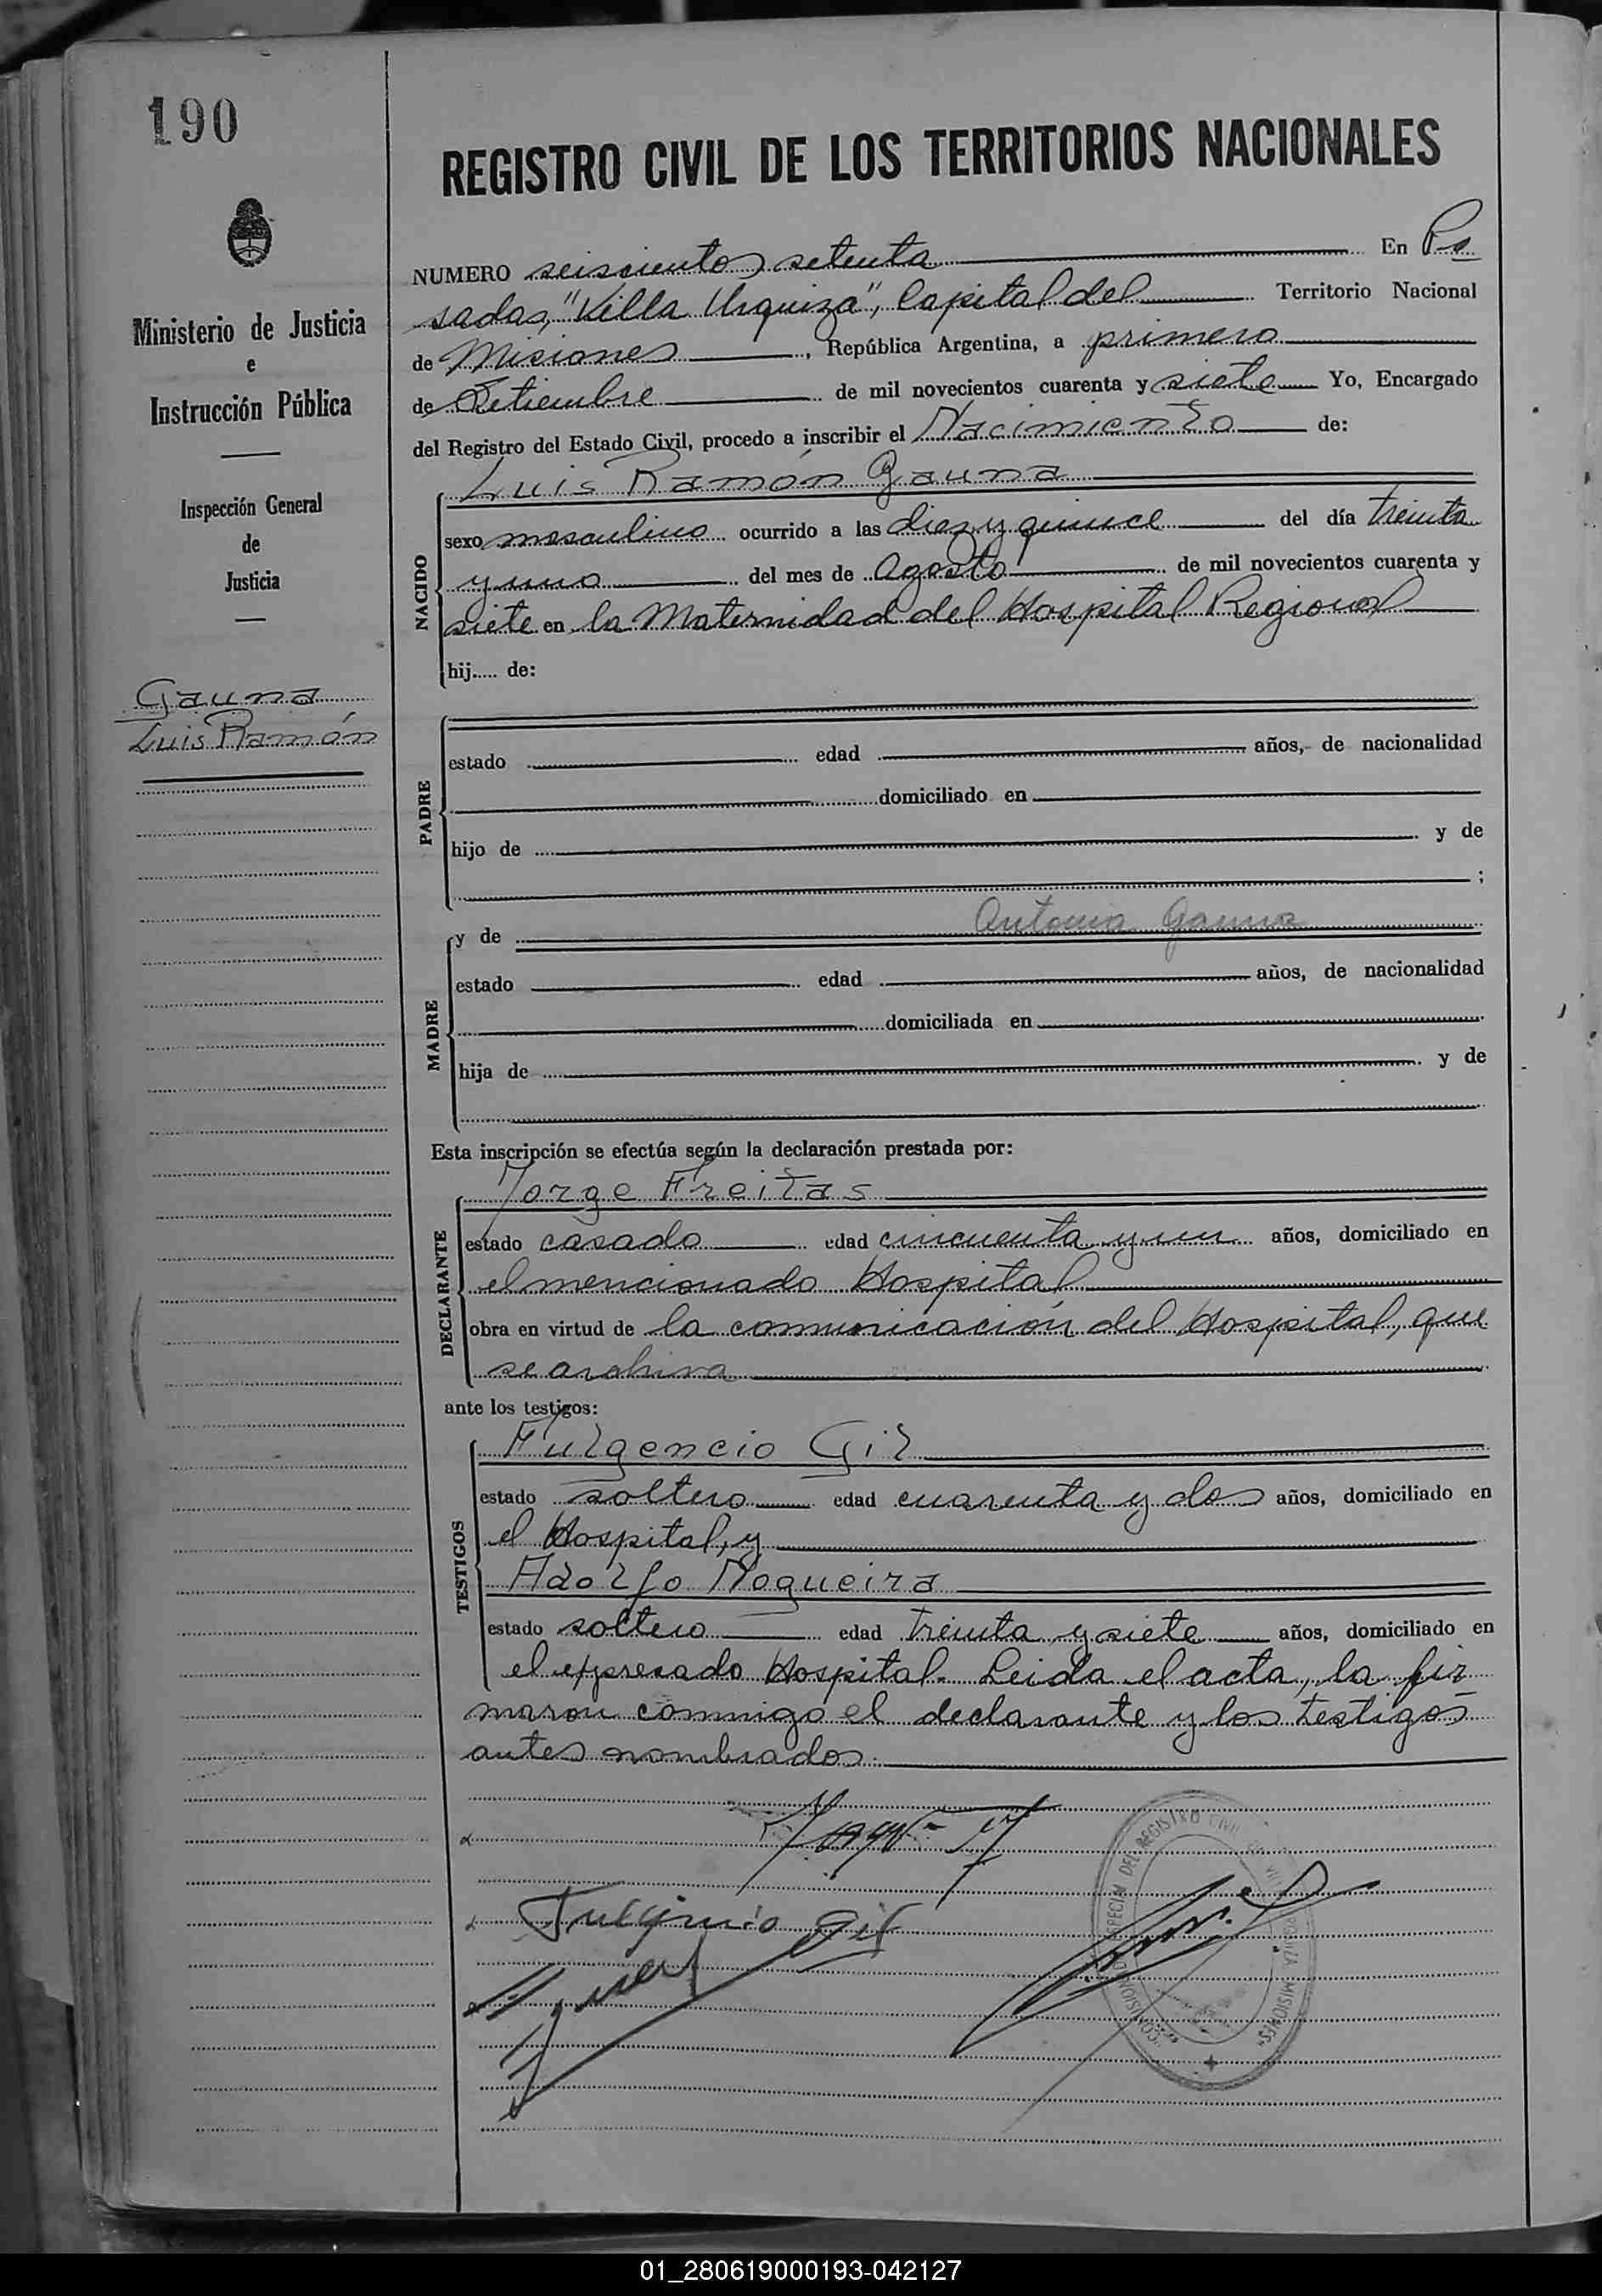 190
REGISTRO CIVIL DE LOS TERRITORIOS NACIONALES
Ministerio de Justicia
e
Instrucción Pública
Inspección General
de
Justicia
Gauna
Luis Ramón
NUMERO seiscientos setenta En Po
sadas, "Villa Urquiza", Capital del Territorio Nacional
de Misiones, República Argentina, a primero
de Setiembre de mil novecientos cuarenta y siete Yo, Encargado
del Registro del Estado Civil, procedo a inscribir el Nacimiento de:
Luis Ramón Gauna
NACIDO
sexo masculino ocurrido a las diez y quince del día treinta
y uno del mes de Agosto de mil novecientos cuarenta y
siete en la Maternidad del Hospital Regional
hij..... de:
PADRE
estado edad años, de nacionalidad
domiciliado en
hijo de y de
;
MADRE
y de Antonia Gauna
estado edad años, de nacionalidad
domiciliada en
hija de y de
Esta inscripción se efectúa según la declaración prestada por:
DECLARANTE
Jorge Freitas
estado casado edad cincuenta y un años, domiciliado en
el mencionado Hospital
obra en virtud de la comunicación del Hospital, que
se archiva
ante los testigos:
TESTIGOS
Fulgencio Gil
estado soltero edad cuarenta y dos años, domiciliado en
el Hospital, y
Adolfo Nogueira
estado soltero edad treinta y siete años, domiciliado en
el expresado Hospital. Leida el acta, la fir
maron conmigo el declarante y los testigos
antes nombrados.
Fulgencio Gil
REGISTRO CIVIL
MISIONES
01_280619000193-042127